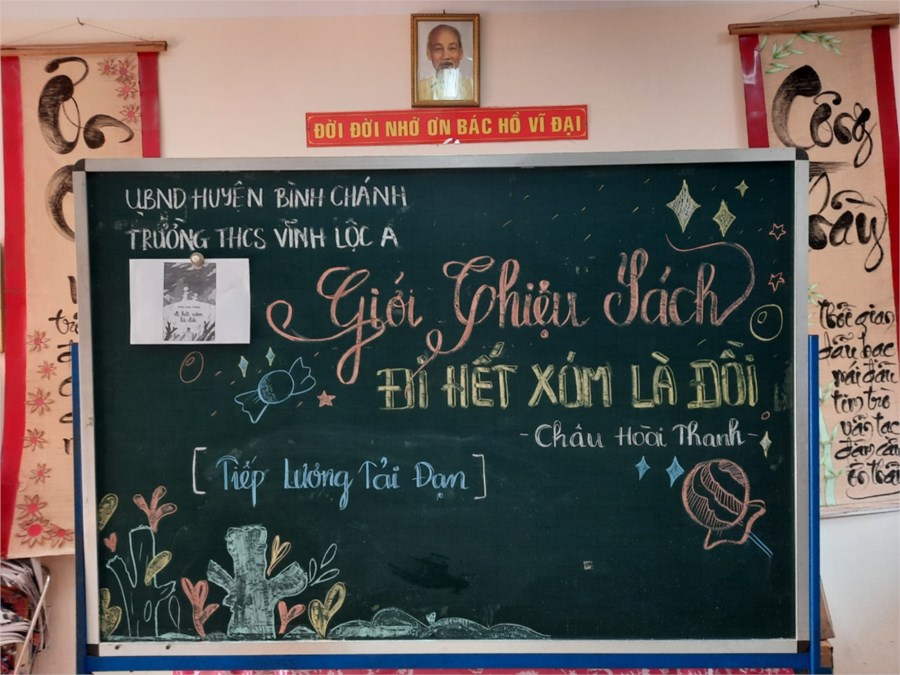 ĐỜI ĐỜI NHỚ ƠN BÁC HỒ VĨ ĐẠI
UBND HUYỆN BÌNH CHÁNH
TRƯỜNG THCS VĨNH LỘC A
Giới Thiệu Sách
ĐI HẾT XÓM LÀ ĐỒI
- Châu Hoài Thanh -
[Tiếp Lương Tải Đạn]
đi hết xóm
là đồi
Ơn
Công
Thầy
Thời gian
dẫu bạc
mái đầu
tim trò
vẫn tạc
đậm câu